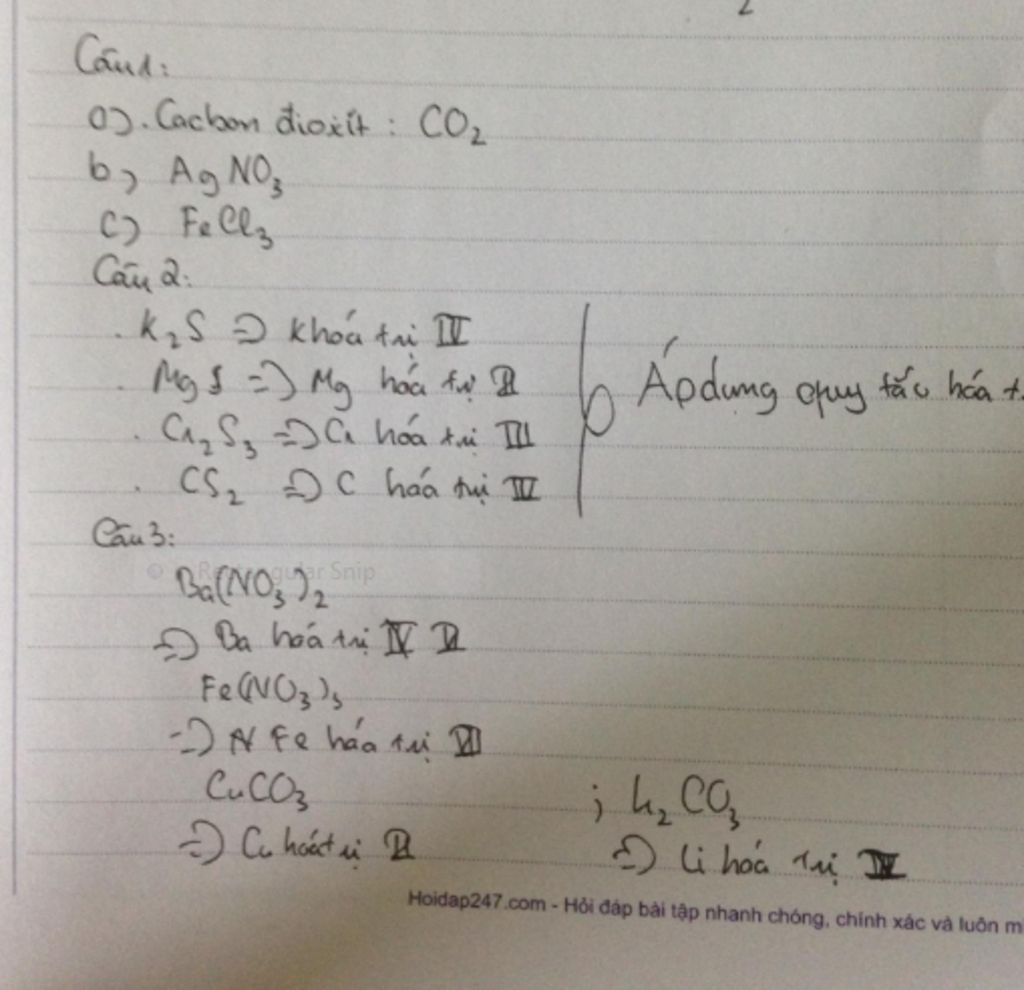 2
Câu1:
a). Cacbon đioxit : CO2
b) AgNO3
c) FeCl3
Câu 2:
. K2S => K hoá trị
. MgS => Mg hóa trị II
. Cr2S3 => Cr hóa trị III
. CS2 => C hóa trị IV
Áp dụng quy tắc hóa t
Câu 3:
Rectangular Snip
Ba(NO3)2
=> Ba hoá trị II
Fe(NO3)3
=> Fe hóa trị
CuCO3 ; Li2CO3
=> Cu hoá trị II => Li hoá trị
Hoidap247.com - Hỏi đáp bài tập nhanh chóng, chính xác và luôn m